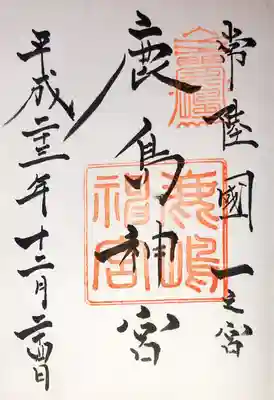 常陸國一之宮
鹿島神宮
鹿嶋
神宮
平成二十三年十二月二十四日